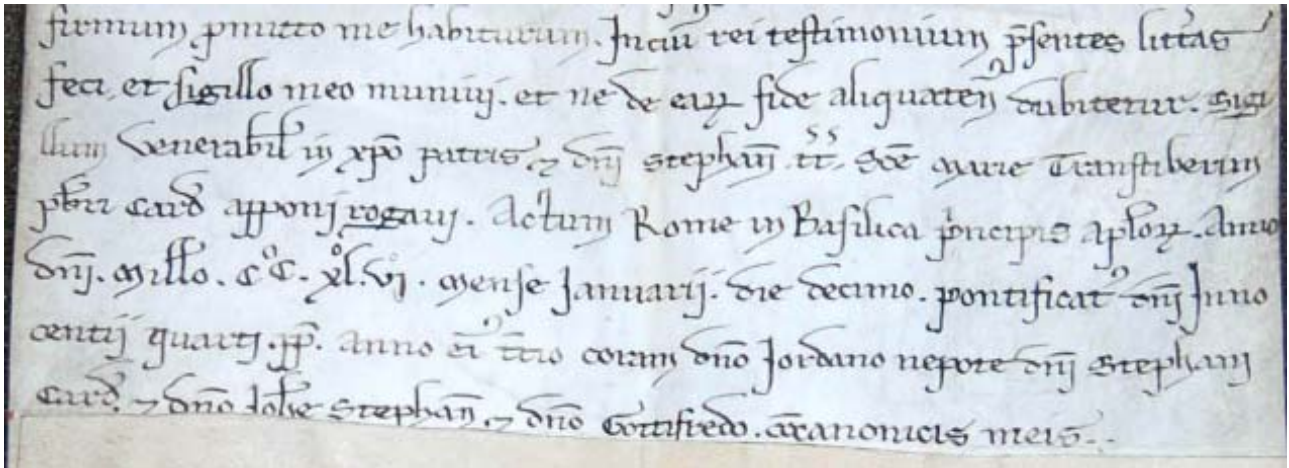 firmum ꝓmitto me habiturum. In cuiꝰ rei testimonium p̄sentes litt̓as
feci, et sigillo meo muniri. et ne de eaꝝ fide aliquaten̄ꝰ dubitetur. sigi
llum venerabil̓ in xp̄o patris, ⁊ dn̄j Stephan̄j. tt̄. Sc̄e Marie Transtiberim
pb̄rı Card̓ apponj rogavj. Actum Rome in Basilica pͥncipis ap̄loꝝ. Anno
dn̄j. Mill̓o. CͦC. xͦl.vj. Mense Januarij. die decimo. pontificatꝰ dn̄j Inno
centij quartj. pp̄. anno eiꝰ t̄cio coram dn̄o Jordano nepote dn̄j Stephanj
Card̓. ⁊ dn̄o Joh̄e Stephan̄j. ⁊ dn̄o Gottifredo. cōcanonicis meis..